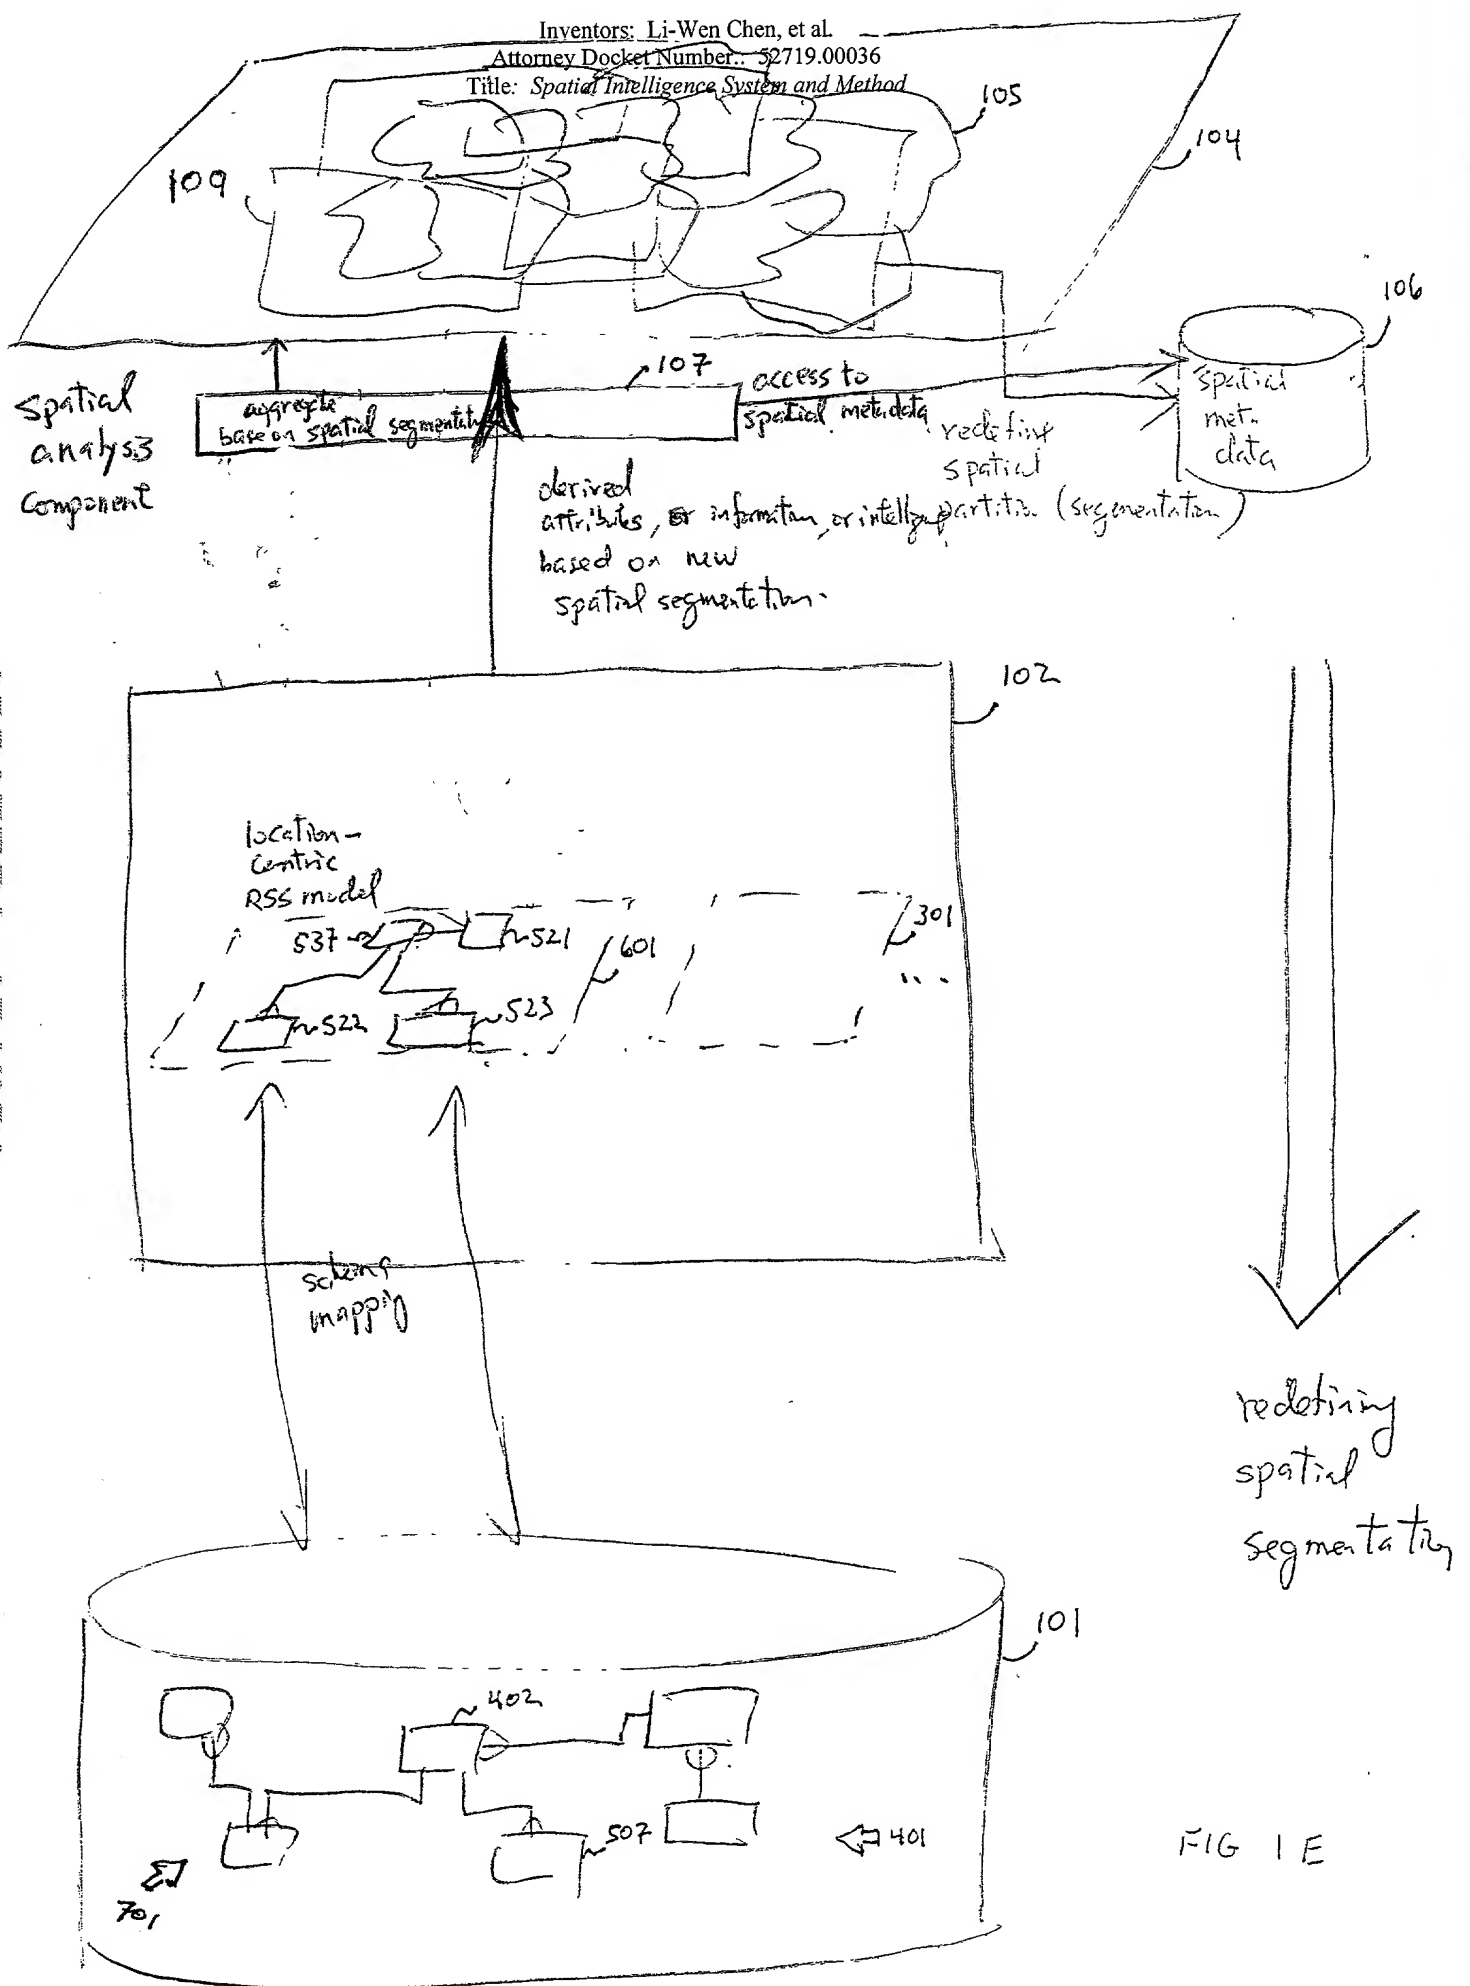 Inventors: Li-Wen Chen, et al.
Attorney Docket Number.: 52719.00036
Title: Spatial Intelligence System and Method
105
104
109
106
107
spatial
analysis
component
aggregate
base on spatial segmentation
access to
spatial metadata
spatial
meta
data
redefine
spatial
partition (segmentation)
derived
attributes, or information, or intelligence
based on new
spatial segmentation.
102
location-
centric
RSS model
537
521
601
301
...
522
523
schema
mapping
redefining
spatial
segmentation
101
402
507
401
701
FIG 1E